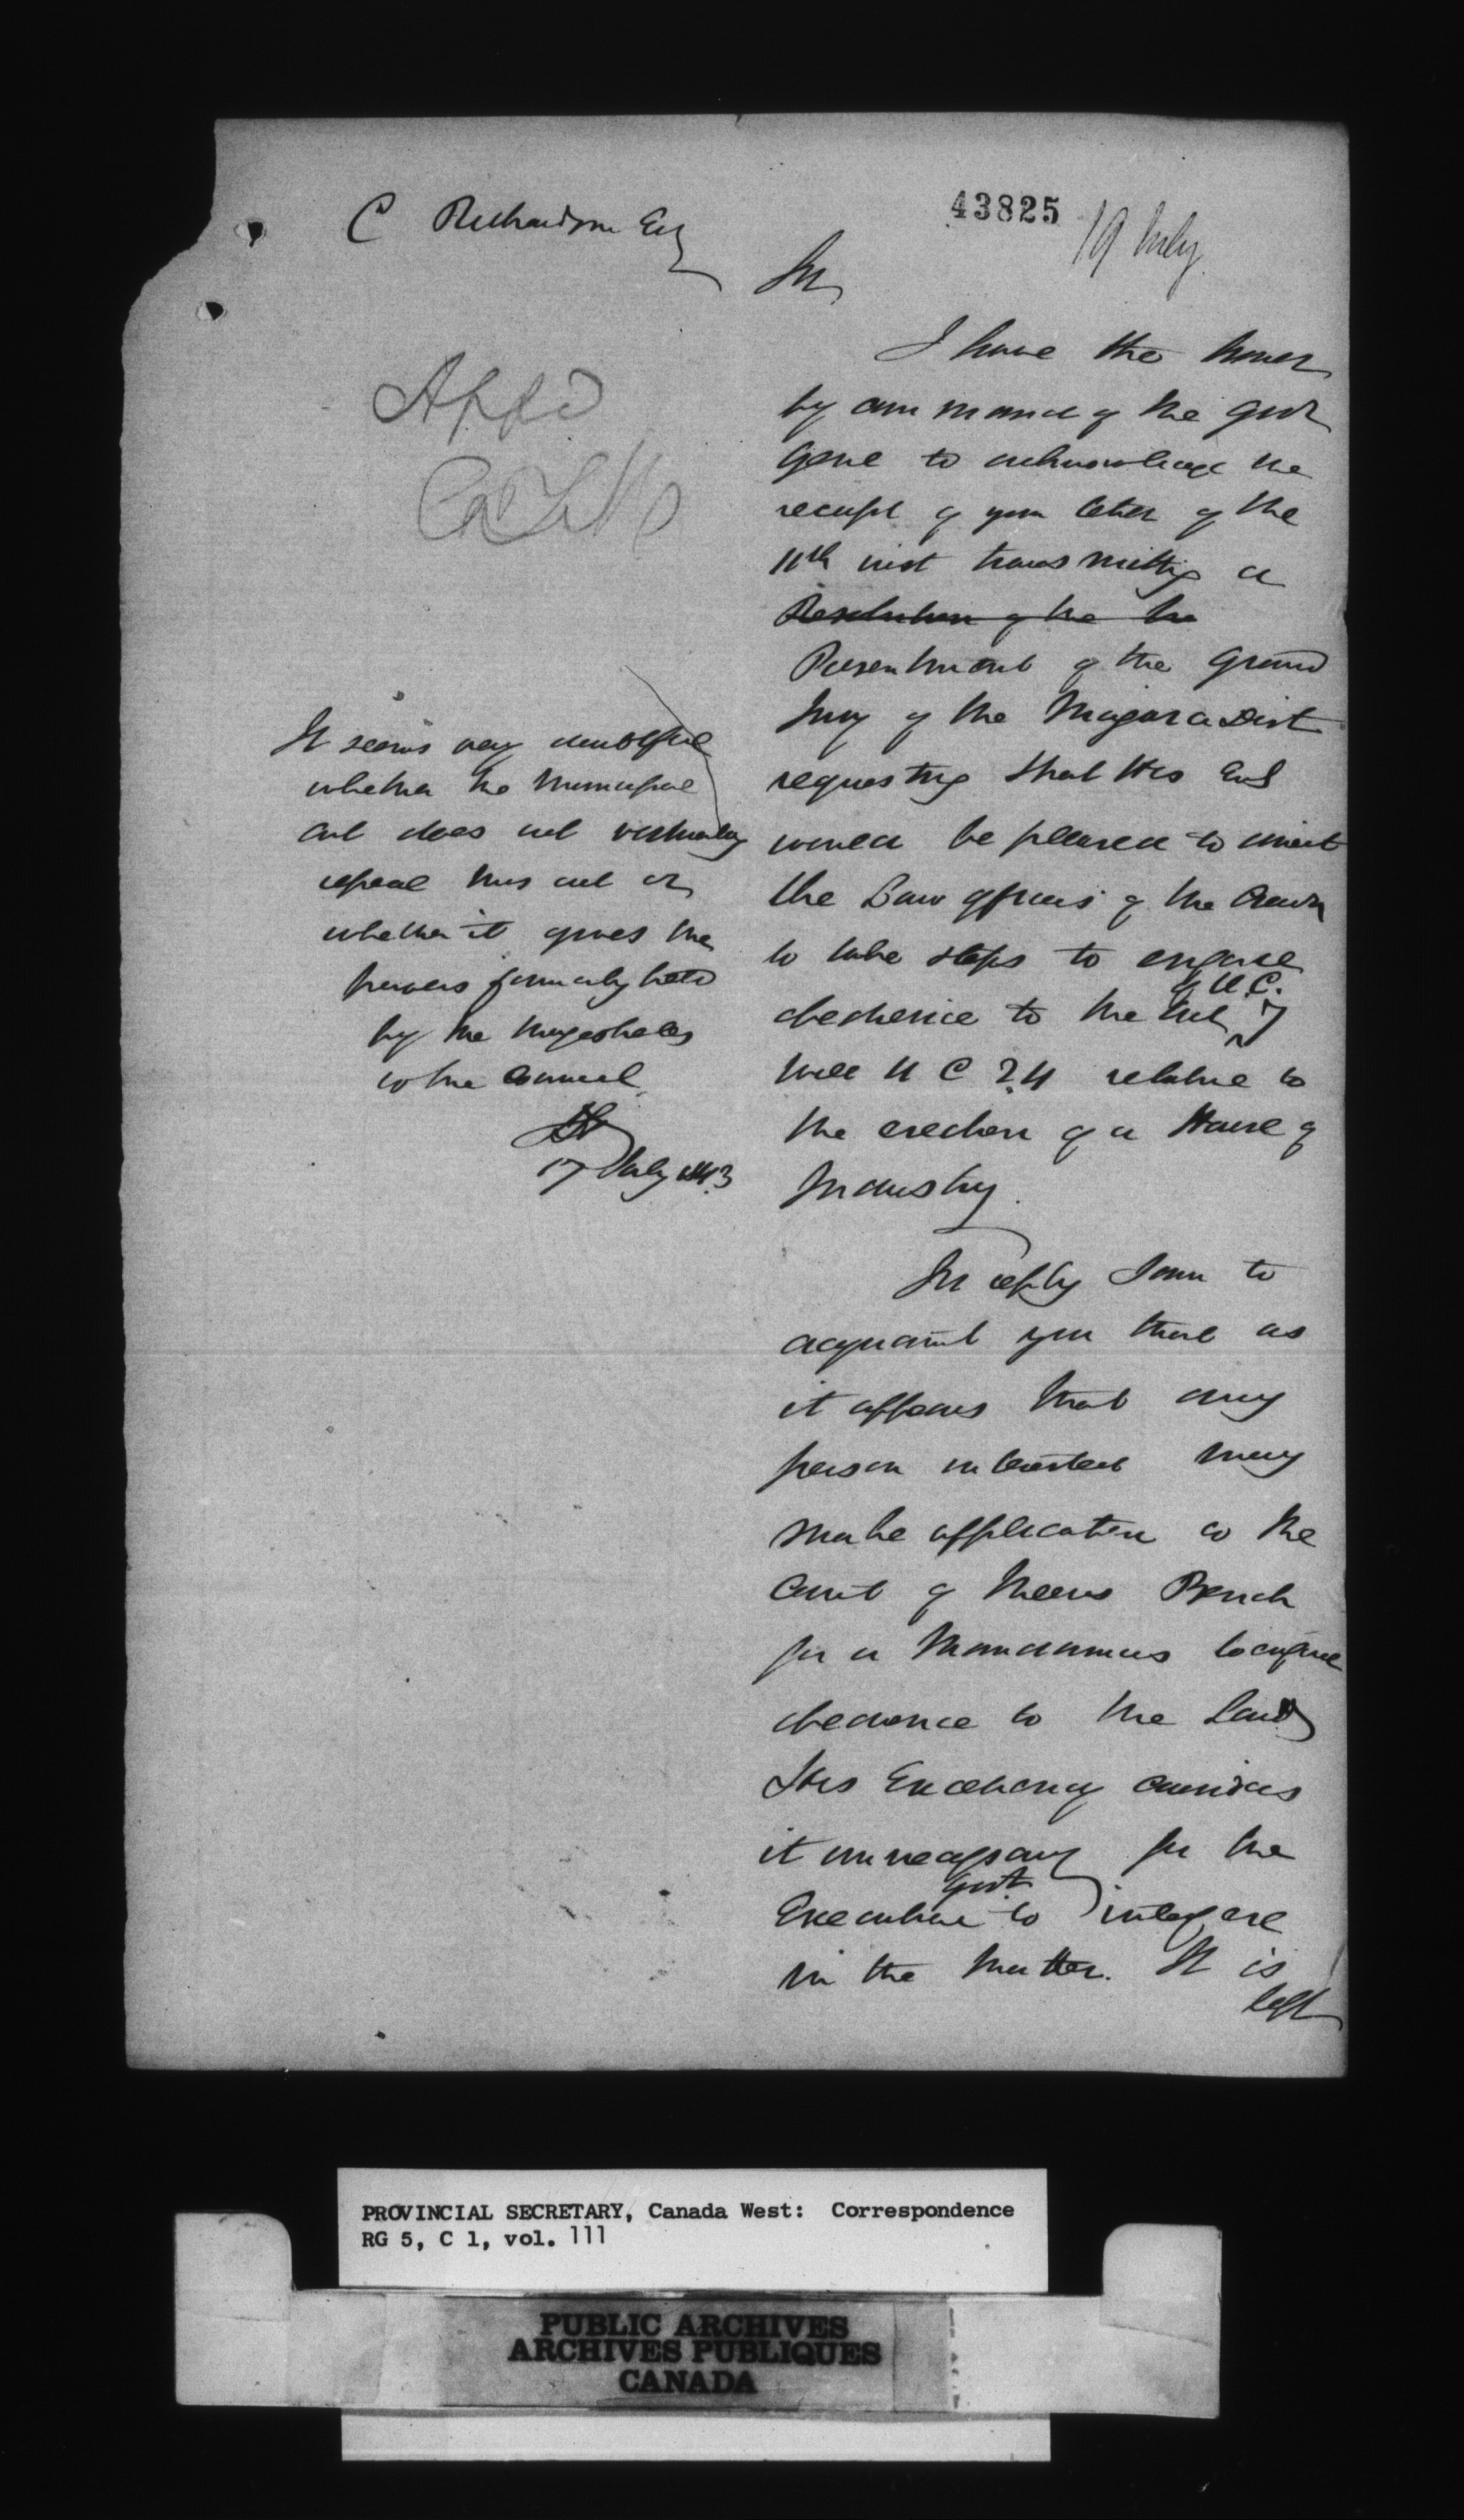 43825
19 July
C Richardson Esq
Sir
I have the honor
by command of the Govr
Genl to acknowledge the
receipt of your letter of the
11th inst transmittg a
Resolution of the
Presentment of the Grand
Jury of the Niagara Dist
requestng that His Exl
would be pleased to direct
the Law officers of the Crown
to take steps to enforce
obedience to the Act of U.C. 7
Will U C 24 relative to
the erection of a House of
Industry.
In reply I am to
acquaint you that as
it appears that any
person interested may
make application to the
Court of Queens Bench
for a Mandamus to enforce
obedience to the Law
His Excellency considers
it unnecessary for the
Executive Govt to interfere
in the matter. It is
left
Appd
It seems very doubtful
whether the Municipal
Act does not virtually
repeal this act or
whether it gives the
powers formerly held
by the Magistrates
to the Council
17 July 1843
PROVINCIAL SECRETARY, Canada West: Correspondence
RG 5, C 1, vol. 111
PUBLIC ARCHIVES
ARCHIVES PUBLIQUES
CANADA